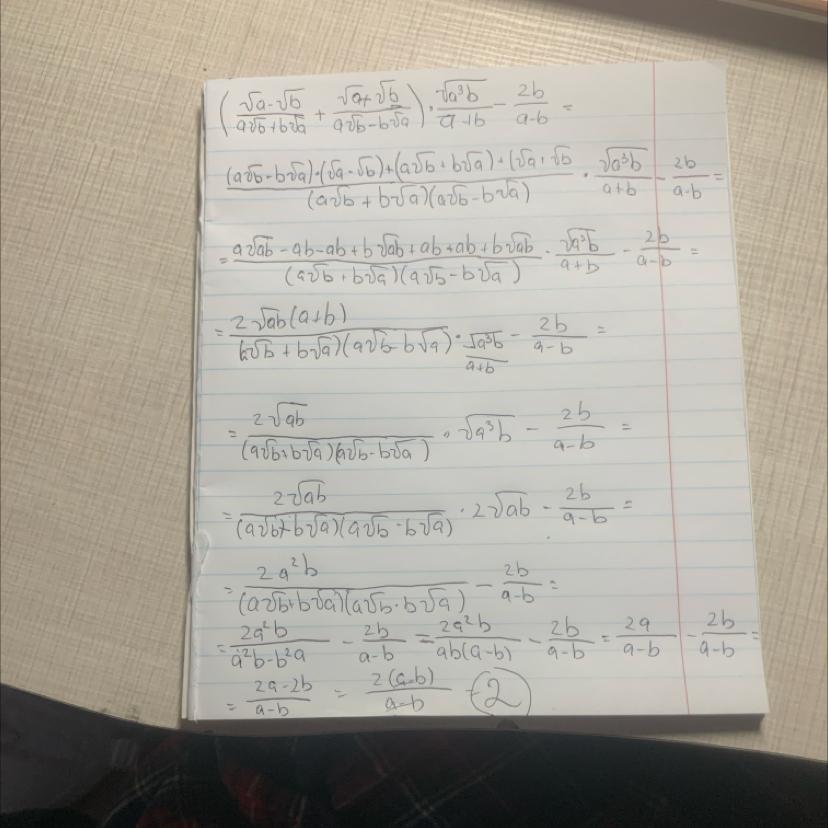 (√a-√b / a√b+b√a + √a+√b / a√b-b√a) · √a³b / a+b - 2b / a-b =
(a√b-b√a)·(√a-√b)+(a√b+b√a)+(√a+√b / (a√b+b√a)(a√b-b√a) · √a³b / a+b - 2b / a-b =
= a√ab-ab-ab+b√ab+ab+ab+b√ab / (a√b+b√a)(a√b-b√a) · √a³b / a+b - 2b / a-b =
= 2√ab(a+b) / (a√b+b√a)(a√b-b√a) · √a³b / a+b - 2b / a-b =
= 2√ab / (a√b+b√a)(a√b-b√a) · √a³b - 2b / a-b =
= 2√ab / (a√b+b√a)(a√b-b√a) · 2√ab - 2b / a-b =
= 2a²b / (a√b+b√a)(a√b-b√a) - 2b / a-b =
= 2a²b / a²b-b²a - 2b / a-b = 2a²b / ab(a-b) - 2b / a-b = 2a / a-b - 2b / a-b =
= 2a-2b / a-b = 2(a-b) / a-b = 2